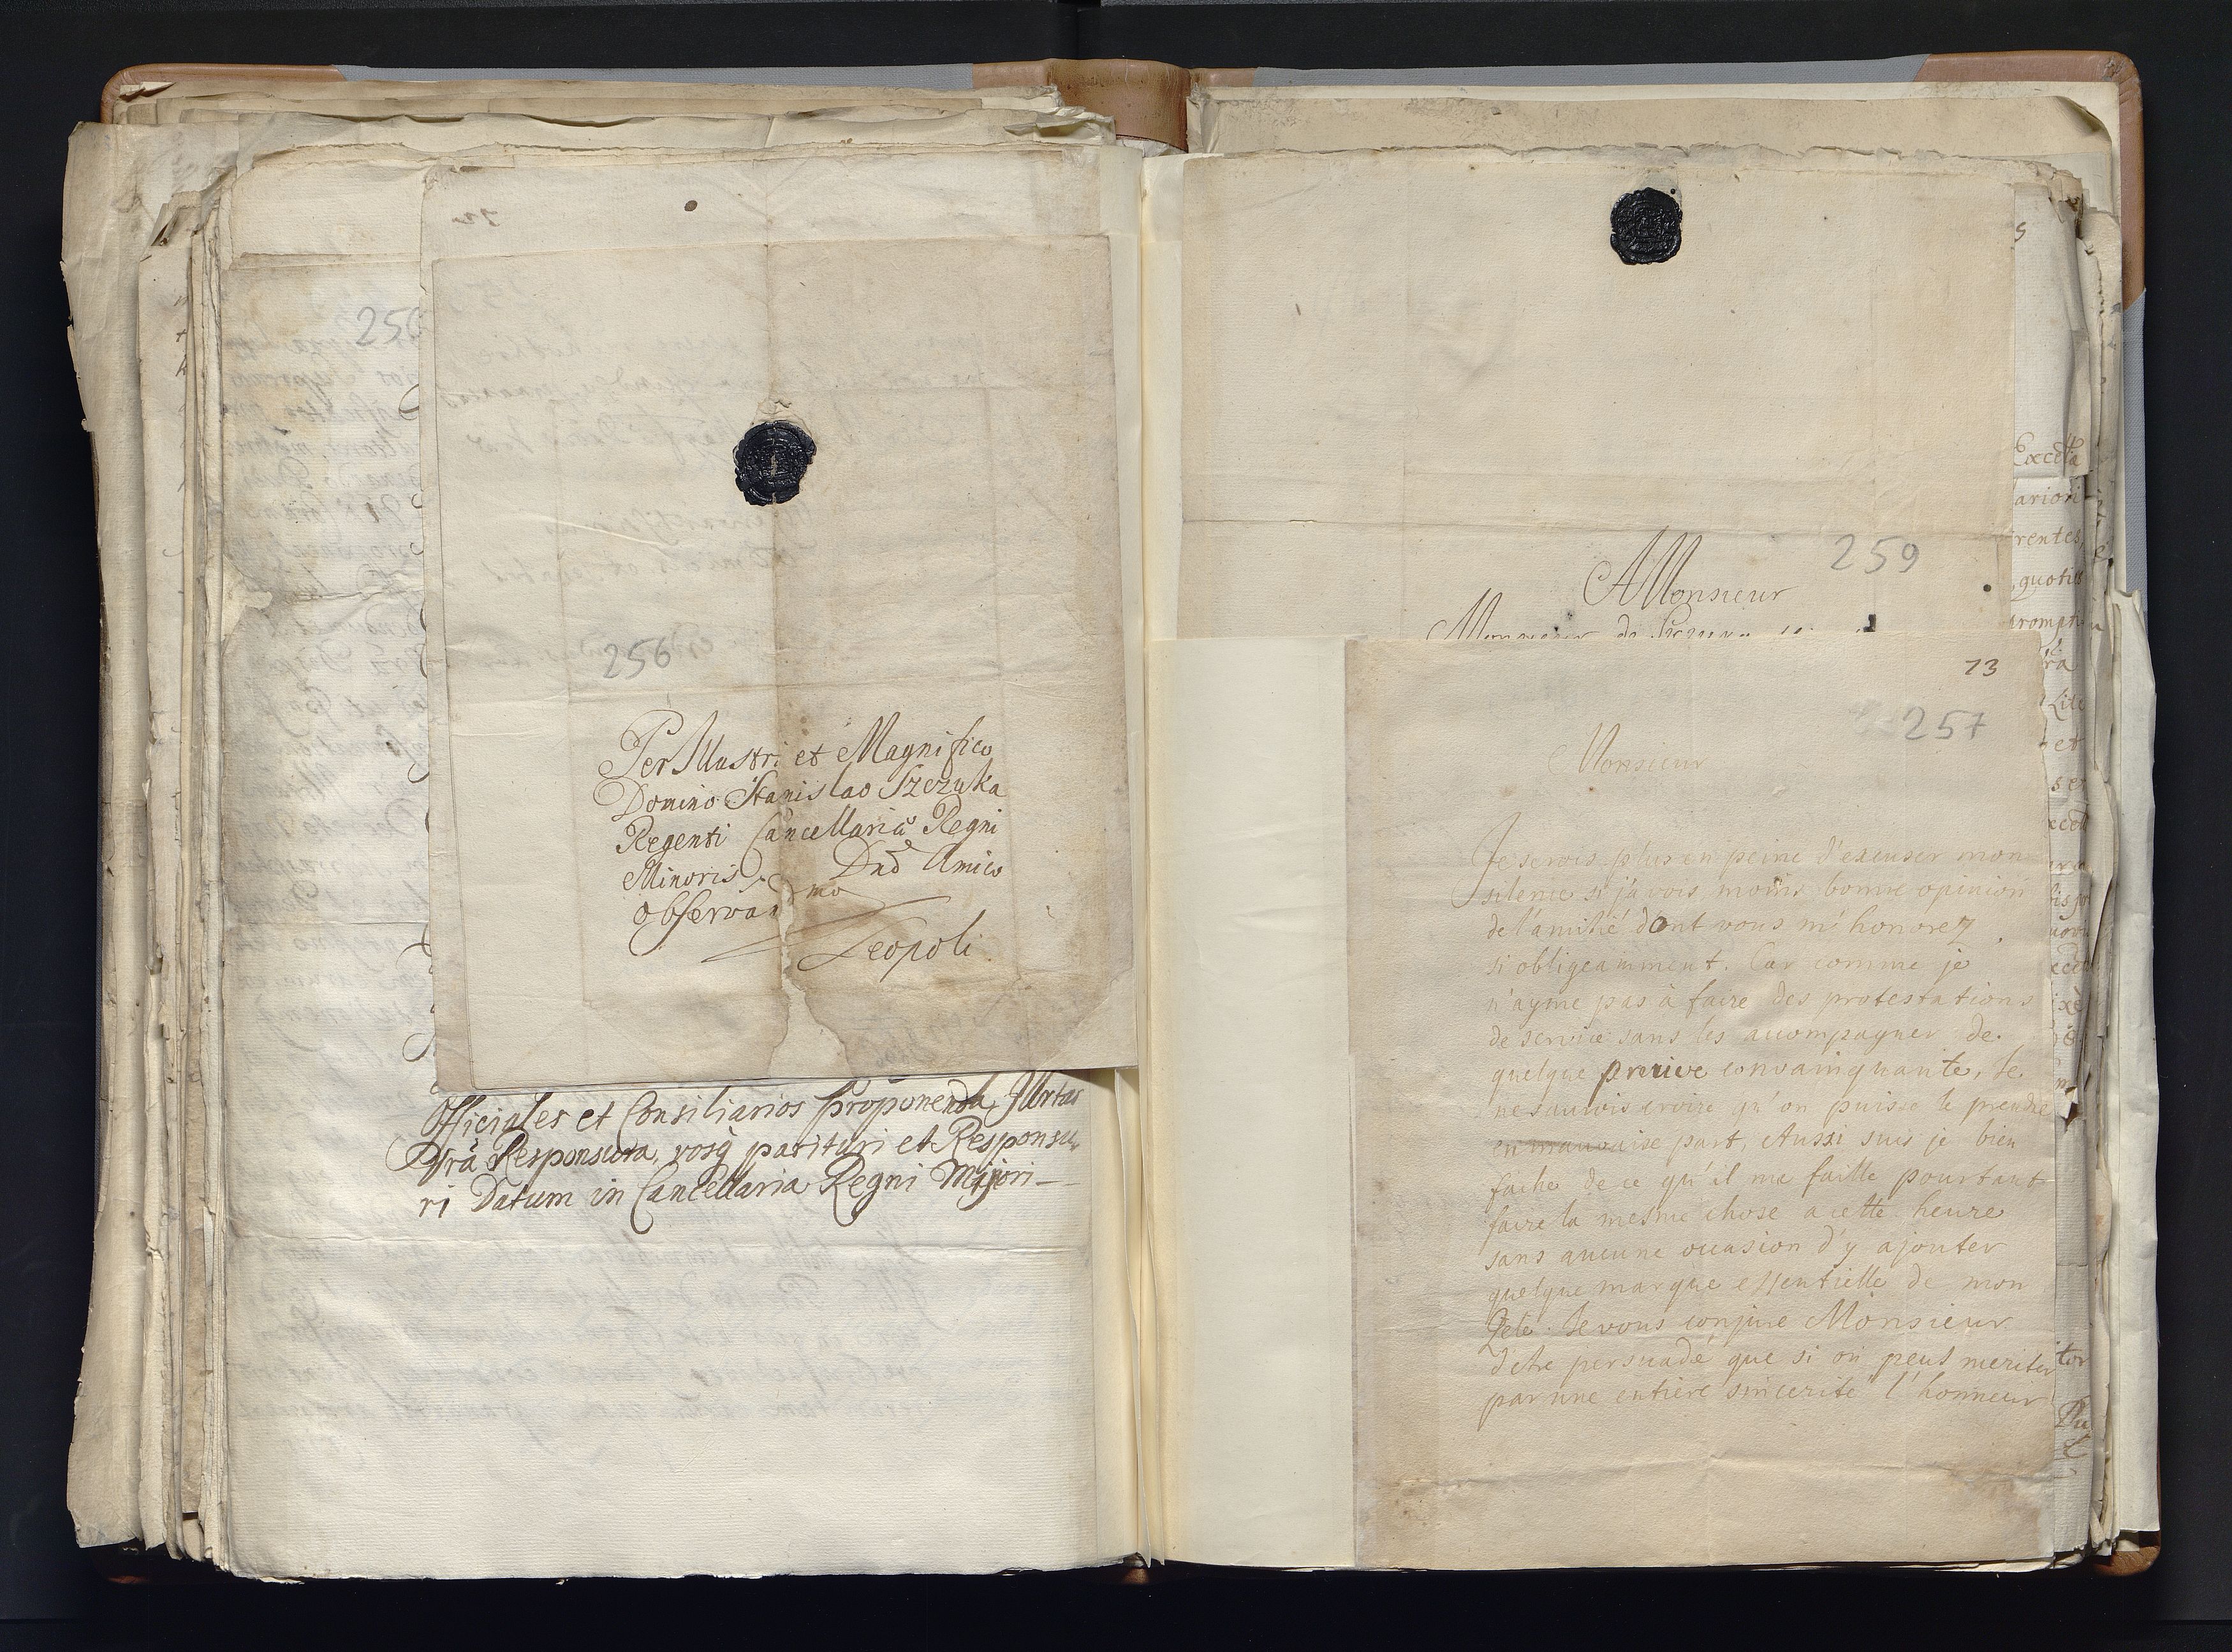 250
256
Per Illustri et Magnifico
Domino Stanislao Szczuka
Regenti Cancellariæ Regni
Minoris Dnõ Amico
Observandmo
Leopoli
Officiales et Consiliarios proponenda, Jurtas
Responsura, vosq parituri et Responsu
ri Datum in Cancellaria Regni Majori
259
A Monsieur
Monsieur de Szczuka
13
257
Monsieur
Je serois plus en peine d'excuser mon
silence si j'avois moins bonne opinion
de l'amitié dont vous m'honorez
si obligeamment. Car comme je
n'ayme pas à faire des protestations
de service sans les accompagner de
quelque preuve convainquante, Je
ne saurois croire qu'on puisse le prendre
en mauvaise part, Aussi suis je bien
faché de ce qu'il me faille pourtant
faire la mesme chose a cette heure
sans aucune occasion d'y ajouter
quelque marque essentielle de mon
Zele. Je vous conjure Monsieur
d'etre persuadé que si on peut meriter
par une entiere sincerité l'honneur
Excella
ariori
rentes,
quoties